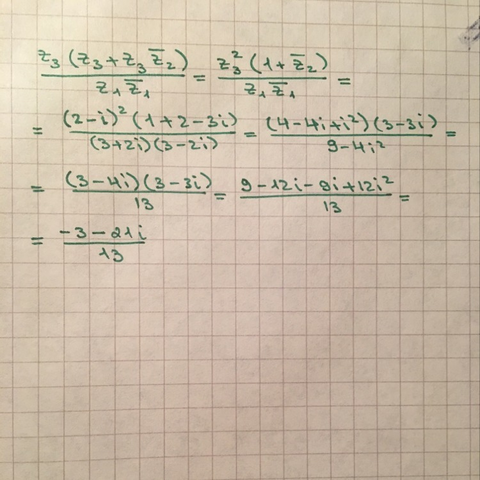 \frac{z_3(z_3+z_3\bar{z}_2)}{z_1\bar{z}_1} = \frac{z_3^2(1+\bar{z}_2)}{z_1\bar{z}_1} =
= \frac{(2-i)^2(1+2-3i)}{(3+2i)(3-2i)} = \frac{(4-4i+i^2)(3-3i)}{9-4i^2} =
= \frac{(3-4i)(3-3i)}{13} = \frac{9-12i-9i+12i^2}{13} =
= \frac{-3-21i}{13}